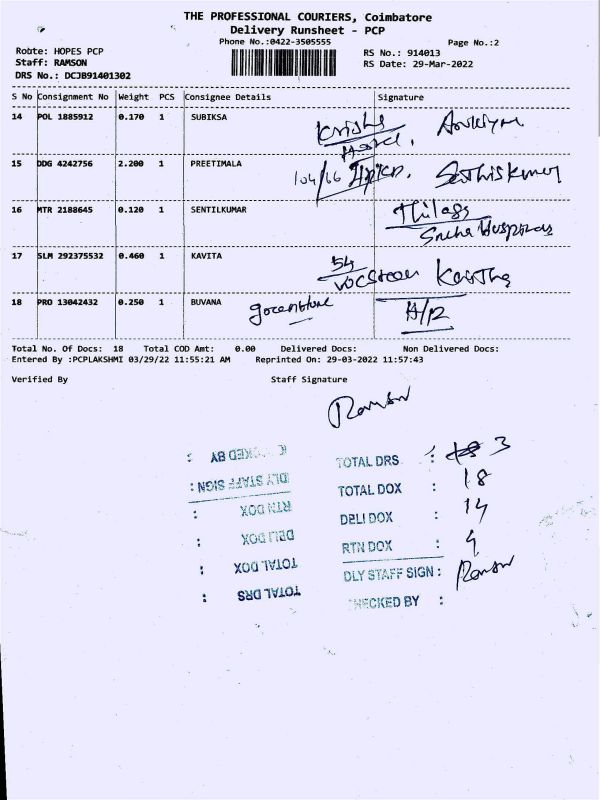 THE PROFESSIONAL COURIERS, Coimbatore
Delivery Runsheet - PCP
Phone No.:0422-3505555
Page No.:2
Route: HOPES PCP
RS No.: 914013
Staff: RAMSON
RS Date: 29-Mar-2022
DRS No.: DCJB91401302
S No Consignment No Weight PCS Consignee Details Signature
14 POL 1885912 0.170 1 SUBIKSA
15 DDG 4242756 2.200 1 PREETIMALA
Sathiskumar
16 MTR 2188645 0.120 1 SENTILKUMAR
17 SLM 292375532 0.460 1 KAVITA
54
18 PRO 13042432 0.250 1 BUVANA
Total No. Of Docs: 18 Total COD Amt: 0.00 Delivered Docs: Non Delivered Docs:
Entered By :PCPLAKSHMI 03/29/22 11:55:21 AM Reprinted On: 29-03-2022 11:57:43
Verified By Staff Signature
Ramson
CHECKED BY :
DLY STAFF SIGN :
RTN DOX :
DELI DOX :
TOTAL DOX :
TOTAL DRS :
TOTAL DRS : 3
TOTAL DOX : 18
DELI DOX : 14
RTN DOX : 4
DLY STAFF SIGN : Ramson
CHECKED BY :